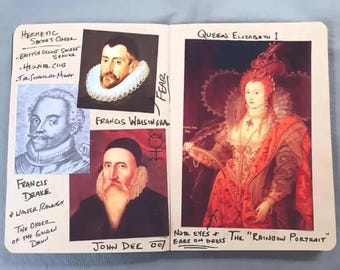 HERMETIC
SECRET ORDER
- BRITISH OCCULT SECRET
SERVICE
- HELLFIRE CLUB
FEAR
FRANCIS WALSINGHAM
FRANCIS
DRAKE
+ WALTER RALEIGH
THE ORDER
OF THE GOLDEN
DAWN
JOHN DEE 007
QUEEN ELIZABETH I
NOTE EYES +
EARS ON DRESS
THE "RAINBOW PORTRAIT"